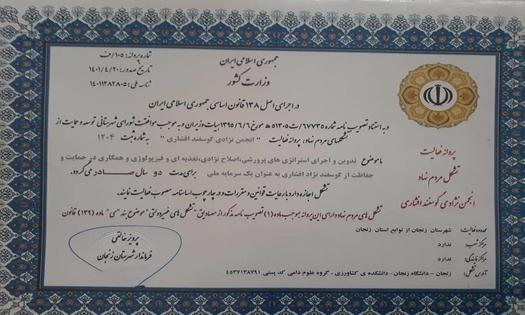 جمهوری اسلامی ایران
وزارت کشور
شماره پروانه: ۱۰۵/ف
تاریخ صدور: ۱۴۰۱/۴/۲۰
شناسه ملی: ۱۴۰۱۱۳۸۲۸۰۵
در اجرای اصل ۱۳۸ قانون اساسی جمهوری اسلامی ایران
و به استناد تصویب نامه شماره ۶۷۷۳۵/ت۵۱۳۰۵ه مورخ ۱۳۹۵/۶/۶ هیات وزیران و به موجب موافقت شورای شهرستانی توسعه و حمایت از
تشکلهای مردم نهاد، پروانه فعالیت " انجمن نژادی گوسفند افشاری " به شماره ثبت ۱۲۰۴
با موضوع تدوین و اجرای استراتژی های پرورشی،اصلاح نژادی،تغذیه ای و فیزیولوژی و همکاری در حمایت و
حفاظت از گوسفند نژاد افشاری به عنوان یک سرمایه ملی برای مدت دو سال صادر می گردد.
تشکل اجازه دارد با رعایت قوانین و مقررات و در چارچوب اساسنامه مصوب فعالیت نمایند.
تشکل های مردم نهاد دارای این پروانه به موجب ماده (۱) تصویب نامه مذکور از مصادیق " تشکل های غیردولتی " موضوع بند "سی" ماده (۱۳۹) قانون
پروانه فعالیت
تشکل مردم نهاد
انجمن نژادی گوسفند افشاری
محدوده فعالیت: شهرستان زنجان از توابع استان زنجان
مرکز شعب: ندارد
مرکز نمایندگی: ندارد
آدرس تشکل: زنجان - دانشگاه زنجان- دانشکده ی کشاورزی - گروه علوم دامی کد پستی ۴۵۳۷۱۳۸۷۹۱
پرویز خالقی
فرماندار شهرستان زنجان